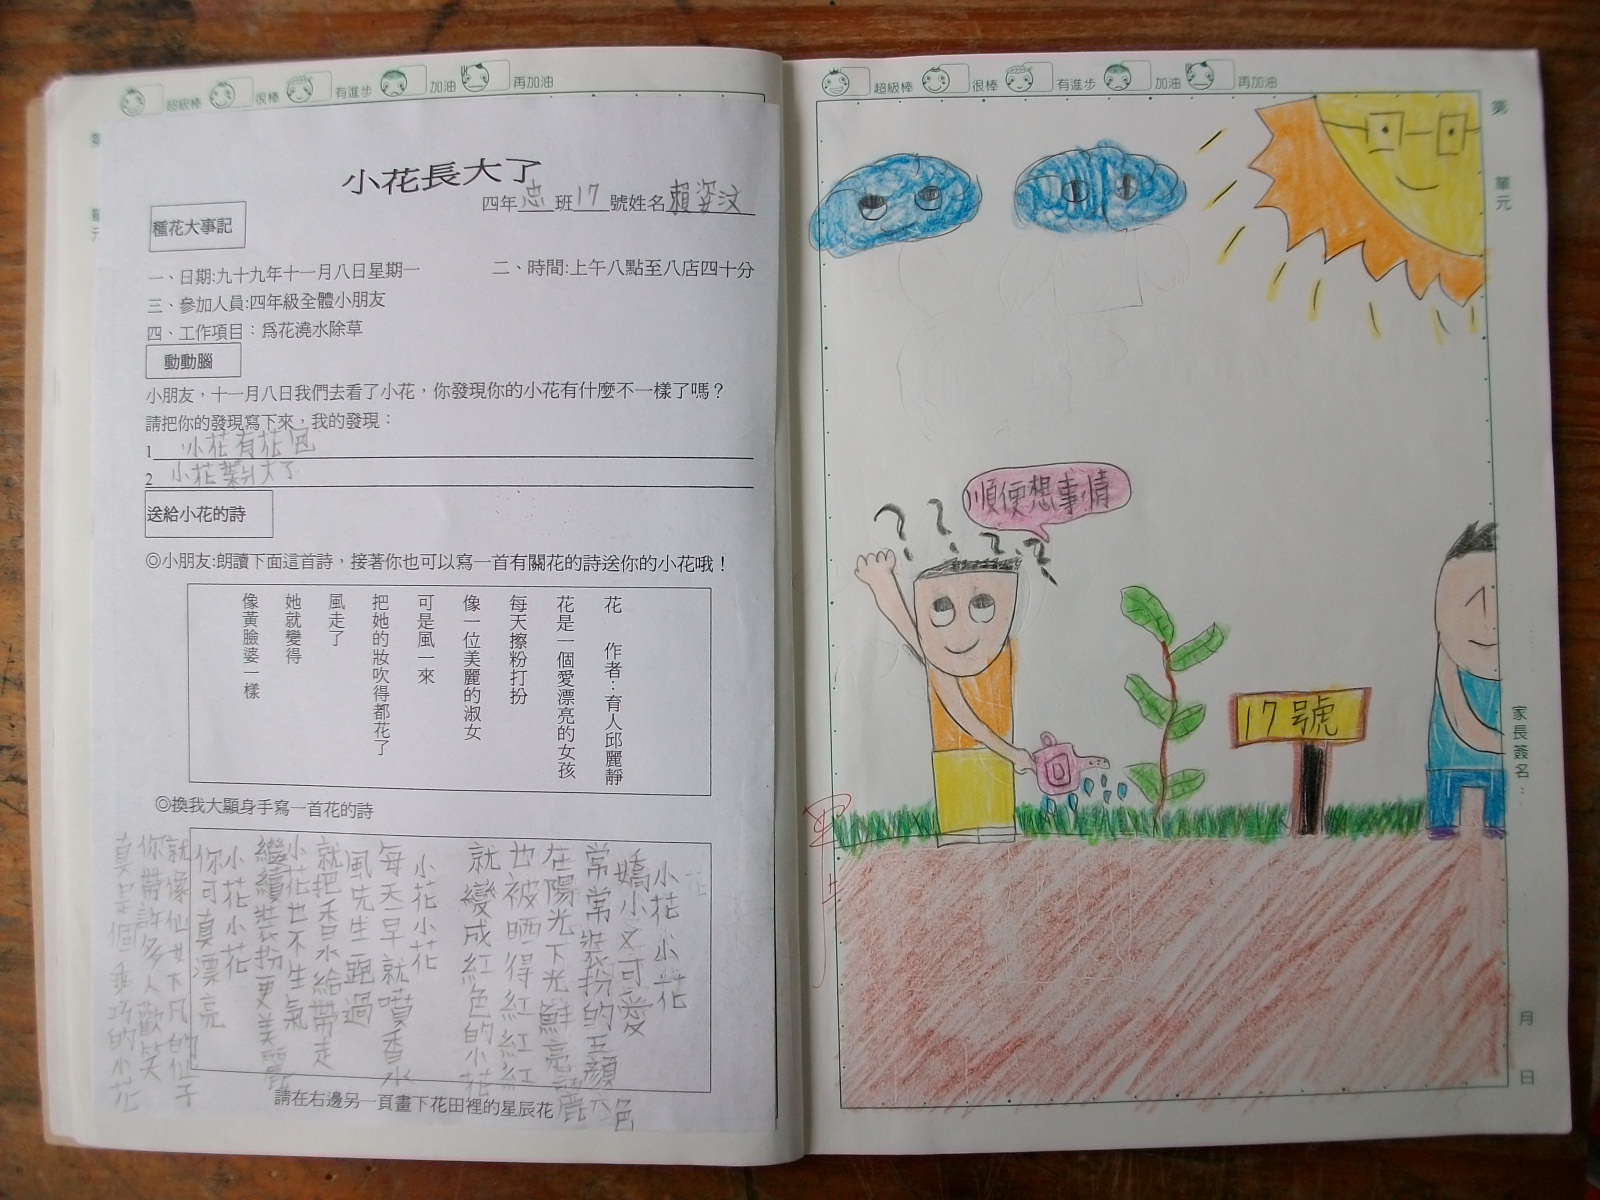 超級棒 很棒 有進步 加油 再加油
小花長大了
四年忠班17號姓名賴姿汶
種花大事記
一、日期:九十九年十一月八日星期一 二、時間:上午八點至八店四十分
三、參加人員:四年級全體小朋友
四、工作項目：為花澆水除草
動動腦
小朋友，十一月八日我們去看了小花，你發現你的小花有什麼不一樣了嗎？
請把你的發現寫下來，我的發現：
1 小花有花包
2 小花葉大了
送給小花的詩
◎小朋友:朗讀下面這首詩，接著你也可以寫一首有關花的詩送你的小花哦！
花 作者：育人邱麗靜
花是一個愛漂亮的女孩
每天擦粉打扮
像一位美麗的淑女
可是風一來
把她的妝吹得都花了
風走了
她就變得
像黃臉婆一樣
◎換我大顯身手寫一首花的詩
花
小花小花
嬌小又可愛
常常裝扮的五顏六色
在陽光下光鮮亮麗
也被晒得紅紅紅
就變成紅色的小花
小花小花
每天早就噴香水
風先生跑過
就把香水給帶走
小花也不生氣
繼續裝扮更美麗
小花小花
你可真漂亮
就像仙女下凡的仙子
你帶許多人歡笑
真是個乖巧的小花
請在右邊另一頁畫下花田裡的星辰花
超級棒 很棒 有進步 加油 再加油
第 單元
順便想事情
17號
家長簽名：
月 日